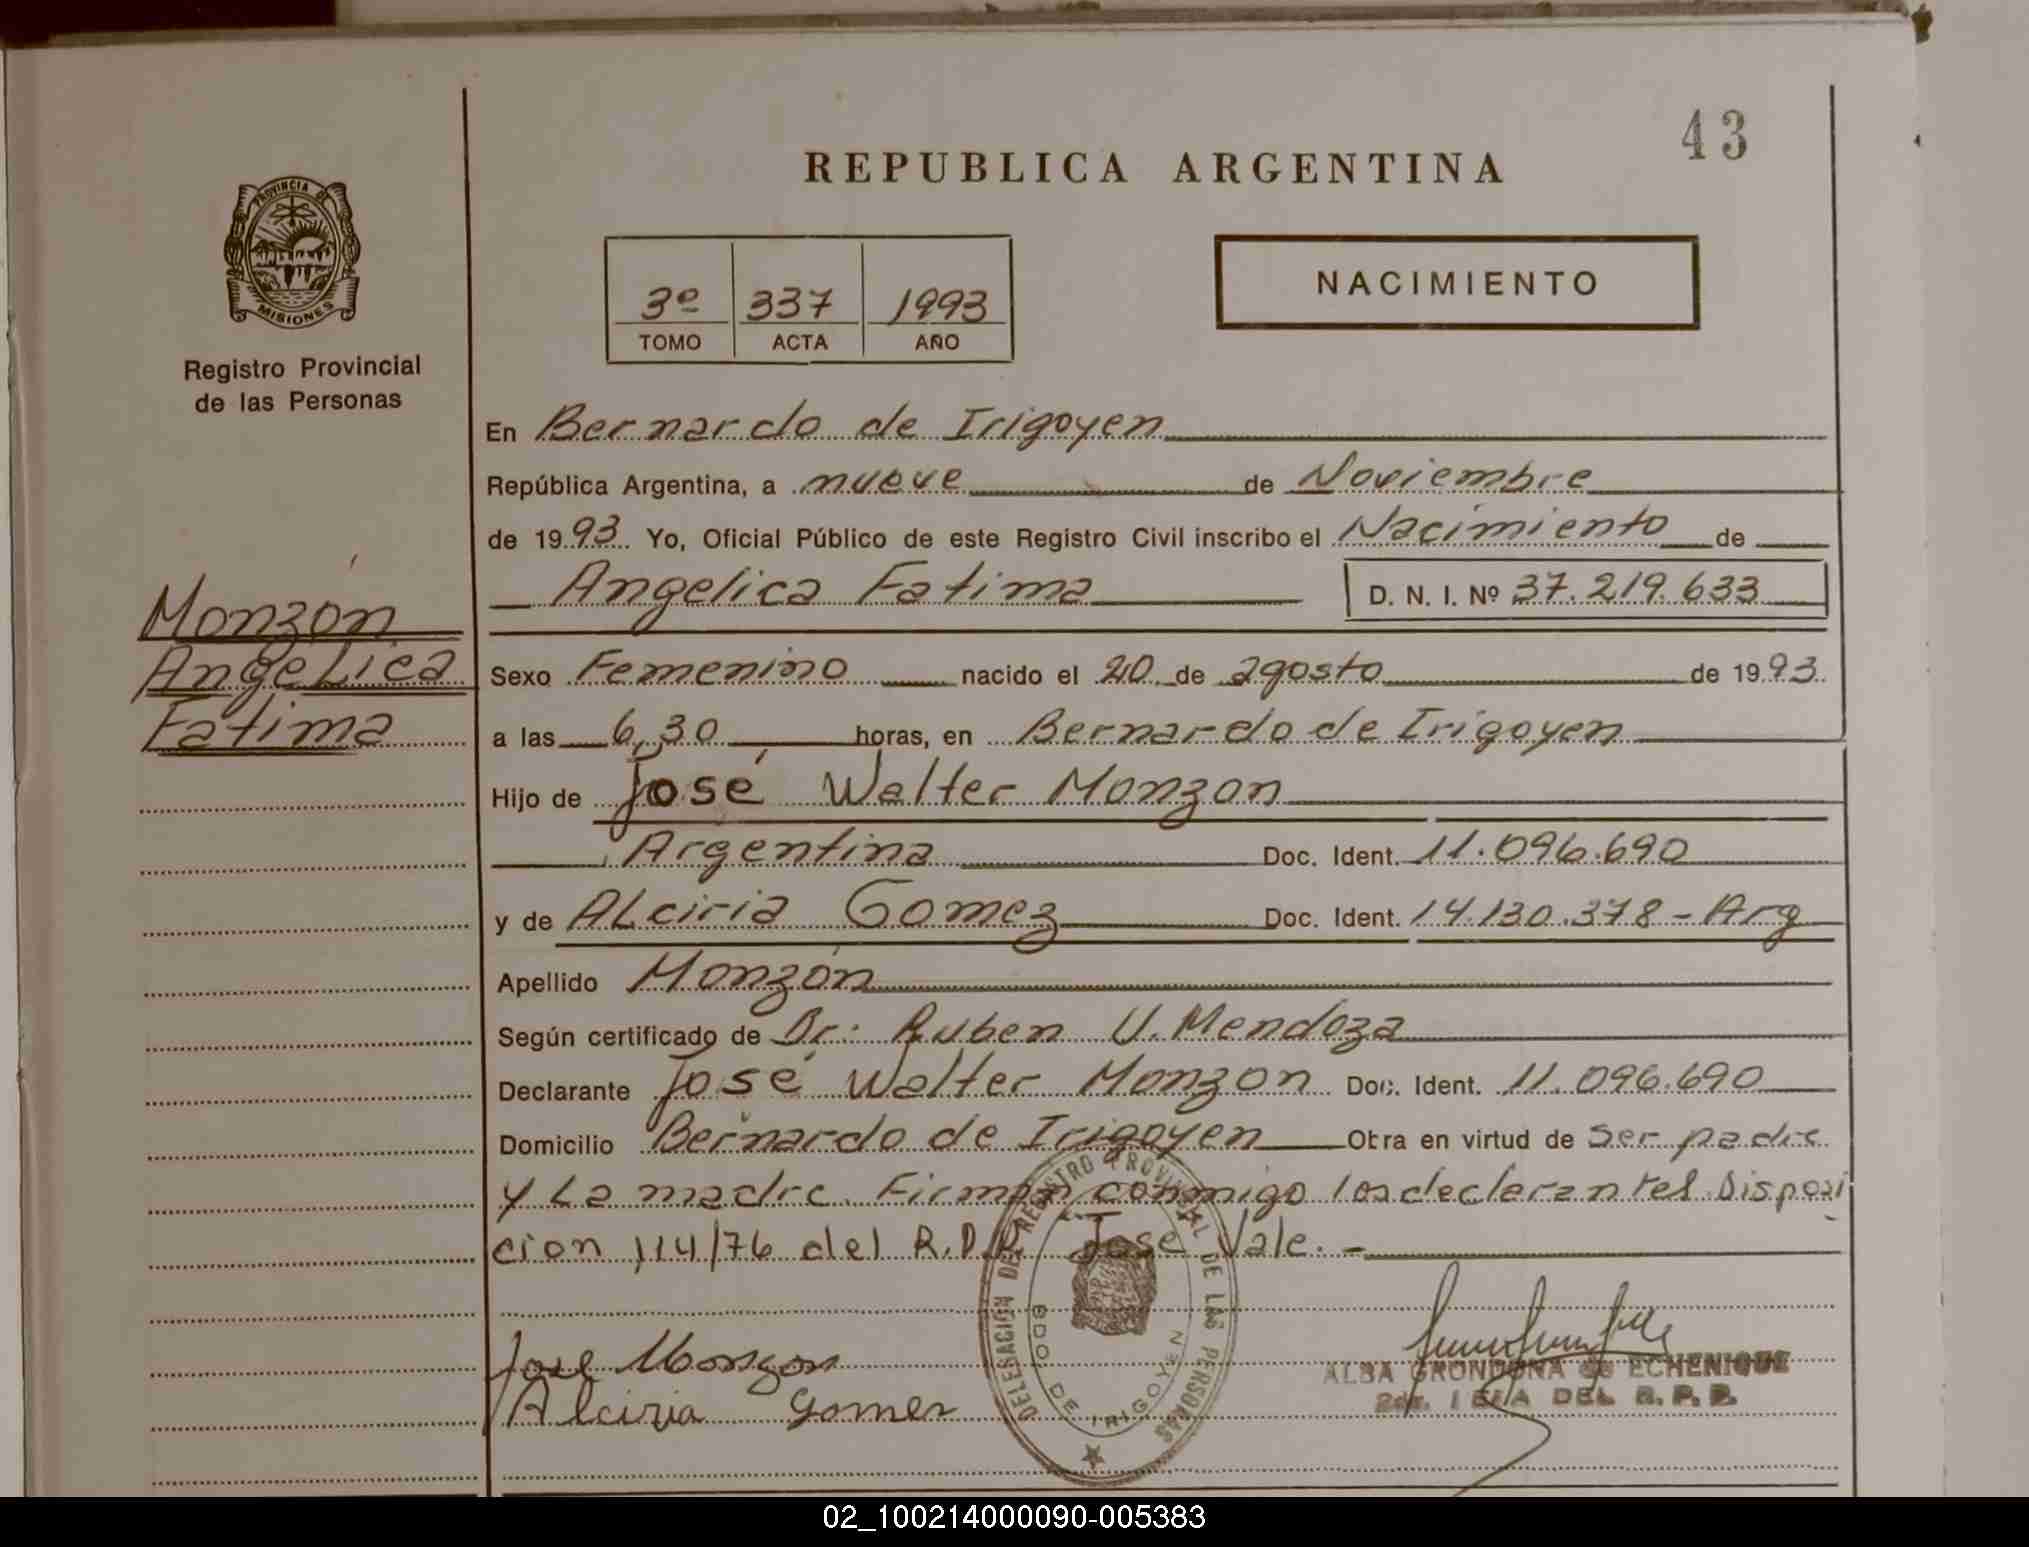 43
REPUBLICA ARGENTINA
PROVINCIA DE
MISIONES
Registro Provincial
de las Personas
3º 337 1993
TOMO ACTA AÑO
NACIMIENTO
En Bernardo de Irigoyen
República Argentina, a nueve de Noviembre
de 1993 Yo, Oficial Público de este Registro Civil inscribo el Nacimiento de
Angelica Fatima D. N. I. Nº 37.219.633
Monzón
Angelica
Fatima
Sexo Femenino nacido el 20 de agosto de 1993
a las 6,30 horas, en Bernardo de Irigoyen
Hijo de José Walter Monzon
Argentina Doc. Ident. 11.096.690
y de ALciria Gomez Doc. Ident. 14.130.378 - Arg
Apellido Monzón
Según certificado de Dr: Ruben U. Mendoza
Declarante José Walter Monzon Doc. Ident. 11.096.690
Domicilio Bernardo de Irigoyen Obra en virtud de ser padre
y La madre. Firman conmigo los declarantes. Disposi
cion 114/76 del R.P.P. "Jose" Vale. -
Jose Monzon
Alciria Gomez
DELEGACION DEL REGISTRO PROVINCIAL DE LAS PERSONAS
BDO. DE IRIGOYEN
ALBA GRONDONA de ECHENIQUE
DEL R. P. P.
02_100214000090-005383